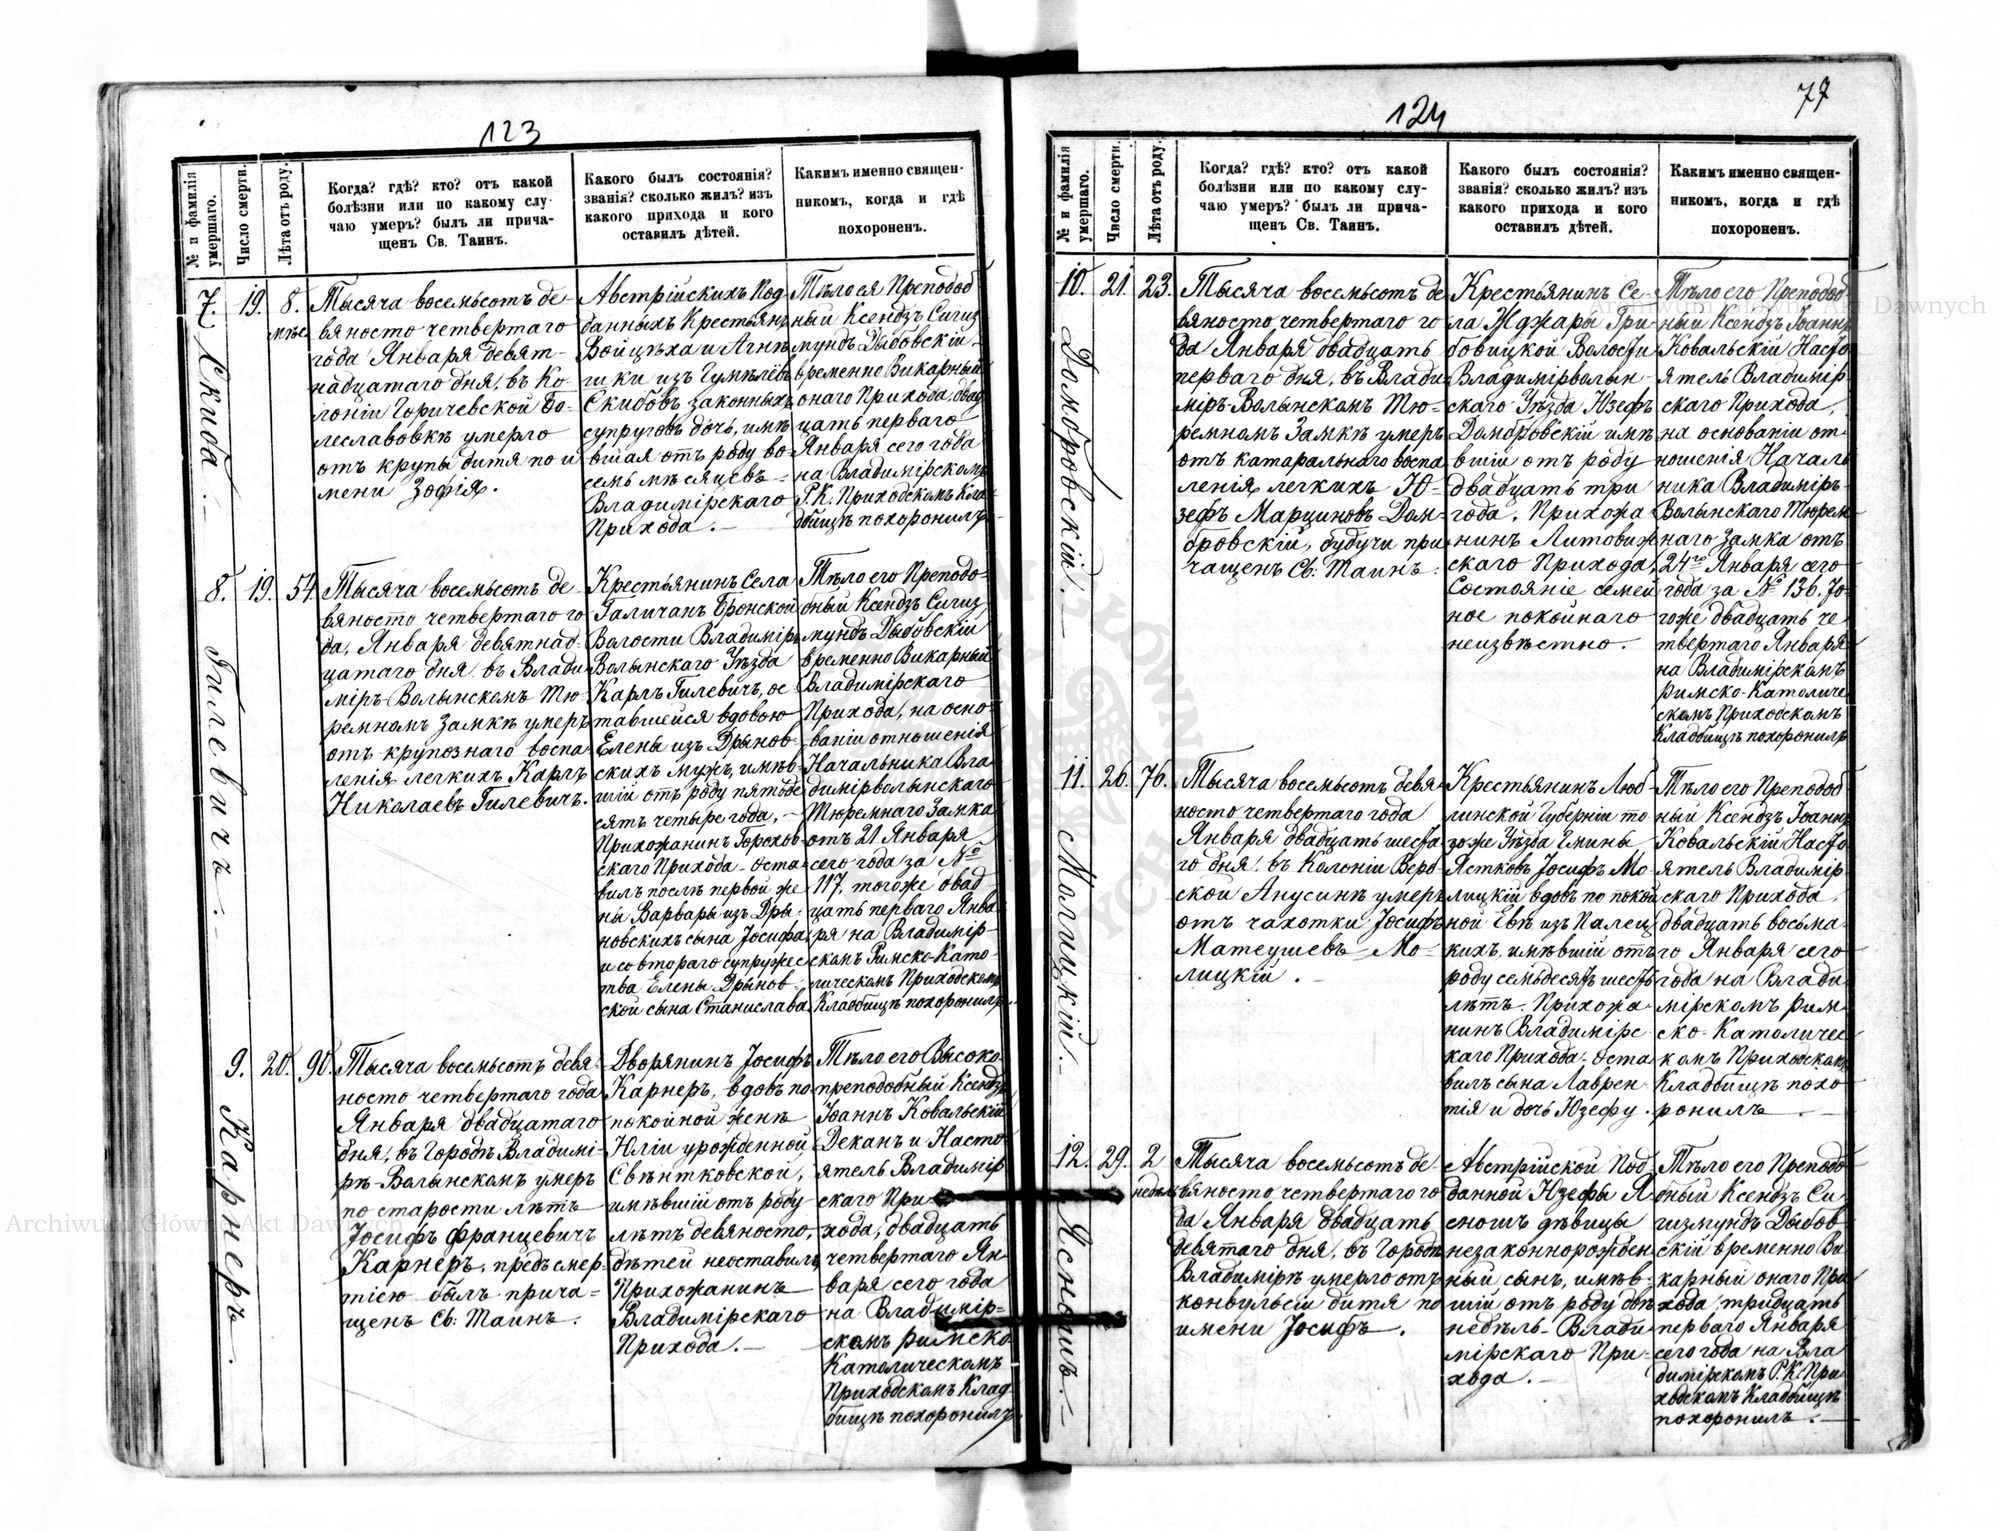 123
№ и фамилія умершаго.
Число смерти.
Лѣта отъ роду.
Когда? гдѣ? кто? отъ какой
болѣзни или по какому слу-
чаю умеръ? былъ ли прича-
щенъ Св. Таинъ.
Какого былъ состоянія?
званія? сколько жилъ? изъ
какого прихода и кого
оставилъ дѣтей.
Какимъ именно священ-
никомъ, когда и гдѣ
похороненъ.
7. Скиба.
19.
8.
мѣс.
Тысяча восемьсотъ де-
вяносто четвертаго
года Января девят-
надцатаго дня, въ Ко-
лоніи Горичевской Бо-
леславовкѣ умерло
отъ крупы дитя по и
мени Зофія.
Австрійскихъ Под
данныхъ Крестьянъ
Войцѣха и Агнѣ
шки изъ Гумѣлёвъ
Скибовъ законныхъ
супруговъ дочь, имѣ
вшая отъ роду во-
семь мѣсяцевъ
Владимірскаго
Прихода.
Тѣло ея Преподоб
ный Ксендзъ Сигиз
мундъ Дыбовскій
временно Викарный
онаго Прихода, двад
цать перваго
Января сего года
на Владимірскомъ
Р. К. Приходскомъ Кла
дбищѣ похоронилъ
8. Гилевичъ.
19.
54
Тысяча восемьсотъ де-
вяносто четвертаго го
да, Января девятнад-
цатаго дня въ Влади
міръ-Волынскомъ Тю-
ремномъ Замкѣ умеръ
отъ крупознаго воспа-
ленія легкихъ Карлъ
Николаевъ Гилевичъ.
Крестьянинъ Села
Галичанъ Бронской
Волости Владиміръ
Волынскаго Уѣзда
Карлъ Гилевичъ, ос
тавшейся вдовою
Елены изъ Дрынов-
скихъ мужъ, имѣв-
шій отъ роду пятьде
сятъ четыре года,
Прихожанинъ Горохов-
скаго Прихода. Оста-
вилъ послѣ первой же
ны Варвары изъ Дры-
новскихъ сына Іосифа
и со втораго супружес
тва Елены Дрынов-
ской сына Станислава
Тѣло его Преподо-
бный Ксендзъ Сигиз
мундъ Дыбовскій
временно Викарный
Владимірскаго
Прихода, на осно-
ваніи отношенія
Начальника Вла-
димірволынскаго
Тюремнаго Замка
отъ 21 Января
сего года за №
117, тогоже двад
цать перваго Янва
ря на Владимір-
скомъ Римско-Като-
лическомъ Приходскомъ
Кладбищѣ похоронилъ
9. Карнеръ.
20.
90.
Тысяча восемьсотъ девя-
носто четвертаго года
Января двадцатаго
дня, въ Городѣ Владимі-
рѣ-Волынскомъ умеръ
по старости лѣтъ
Іосифъ Францевичъ
Карнеръ, предъ смер-
тію былъ прича-
щенъ Св. Таинъ.
Дворянинъ Іосифъ
Карнеръ, вдовъ по
покойной женѣ
Юліи урожденной
Свѣнтковской,
имѣвшій отъ роду
лѣтъ девяносто,
дѣтей неоставилъ
Прихожанинъ
Владимірскаго
Прихода.
Тѣло его Высоко-
преподобный Ксендзъ
Іоаннъ Ковальскій
Деканъ и Насто
ятель Владимір
скаго При-
хода, двадцать
четвертаго Ян-
варя сего года
на Владимір-
скомъ Римско
Католическомъ
Приходскомъ Клад-
бищѣ похоронилъ.
124
77
№ и фамилія умершаго.
Число смерти.
Лѣта отъ роду.
Когда? гдѣ? кто? отъ какой
болѣзни или по какому слу-
чаю умеръ? былъ ли прича-
щенъ Св. Таинъ.
Какого былъ состоянія?
званія? сколько жилъ? изъ
какого прихода и кого
оставилъ дѣтей.
Какимъ именно священ-
никомъ, когда и гдѣ
похороненъ.
10. Домбровскій.
21.
23.
Тысяча восемьсотъ де
вяносто четвертаго го
да Января двадцать
перваго дня, въ Влади
міръ-Волынскомъ Тю-
ремномъ Замкѣ умеръ
отъ катаральнаго воспа
ленія легкихъ Ю-
зефъ Марциновъ Дом-
бровскій, будучи при
чащенъ Св. Таинъ.
Крестьянинъ Се-
ла Жджары Гри-
бовицкой Волости
Владимірволын-
скаго Уѣзда Юзефъ
Домбровскій имѣ
вшій отъ роду
двадцать три
года. Прихожа
нинъ Литовиж
скаго Прихода,
Состояніе семей
ное покойнаго
неизвѣстно.
Тѣло его Преподоб
ный Ксендзъ Іоаннъ
Ковальскій Насто
ятель Владимір-
скаго Прихода,
на основаніи от-
ношенія Началь
ника Владиміръ-
Волынскаго Тюрем
наго Замка отъ
24го Января сего
года за № 136. То-
гоже двадцать че
твертаго Января
на Владимірскомъ
Римско-Католиче
скомъ Приходскомъ
Кладбищѣ похоронилъ
11. Молицкій.
26.
76.
Тысяча восемьсотъ девя
носто четвертаго года
Января двадцать шеста
го дня, въ Колоніи Веро-
ской Анусинъ умеръ
отъ чахотки Іосифъ
Матеушевъ Мо-
лицкій.
Крестьянинъ Люб
линской Губерніи то
гоже Уѣзда Гмины
Ястковъ Іосифъ Мо
лицкій вдовъ по покой
ной Евѣ изъ Палец
кихъ, имѣвшій отъ
роду семьдесятъ шесть
лѣтъ. Прихожа
нинъ Владимірс-
каго Прихода. Оста
вилъ сына Лаврен-
тія и дочь Юзефу.
Тѣло его Преподоб
ный Ксендзъ Іоаннъ
Ковальскій Насто
ятель Владимір
скаго Прихода,
двадцать восьма-
го Января сего
года на Влади
мірскомъ Рим
ско-Католичес
комъ Приходскомъ
Кладбищѣ похо
ронилъ.
12. Ясношъ.
29.
2
недѣль
Тысяча восемьсотъ де-
вяносто четвертаго го
да Января двадцать
девятаго дня, въ Городѣ
Владимірѣ умерло отъ
конвульсіи дитя по
имени Іосифъ.
Австрійской Под
данной Юзефы Я
сношъ дѣвицы
незаконнорожден
ный сынъ, имѣв-
шій отъ роду двѣ
недѣль. Влади
мірскаго При-
хода.
Тѣло его Преподо
бный Ксендзъ Си
гизмундъ Дыбов
скій временно Ви
карный онаго При
хода, тридцать
перваго Января
сего года на Вла
димірскомъ Р. К. При
ходскомъ Кладбищѣ
похоронилъ.
Archiwum Główne Akt Dawnych
Archiwum Główne Akt Dawnych